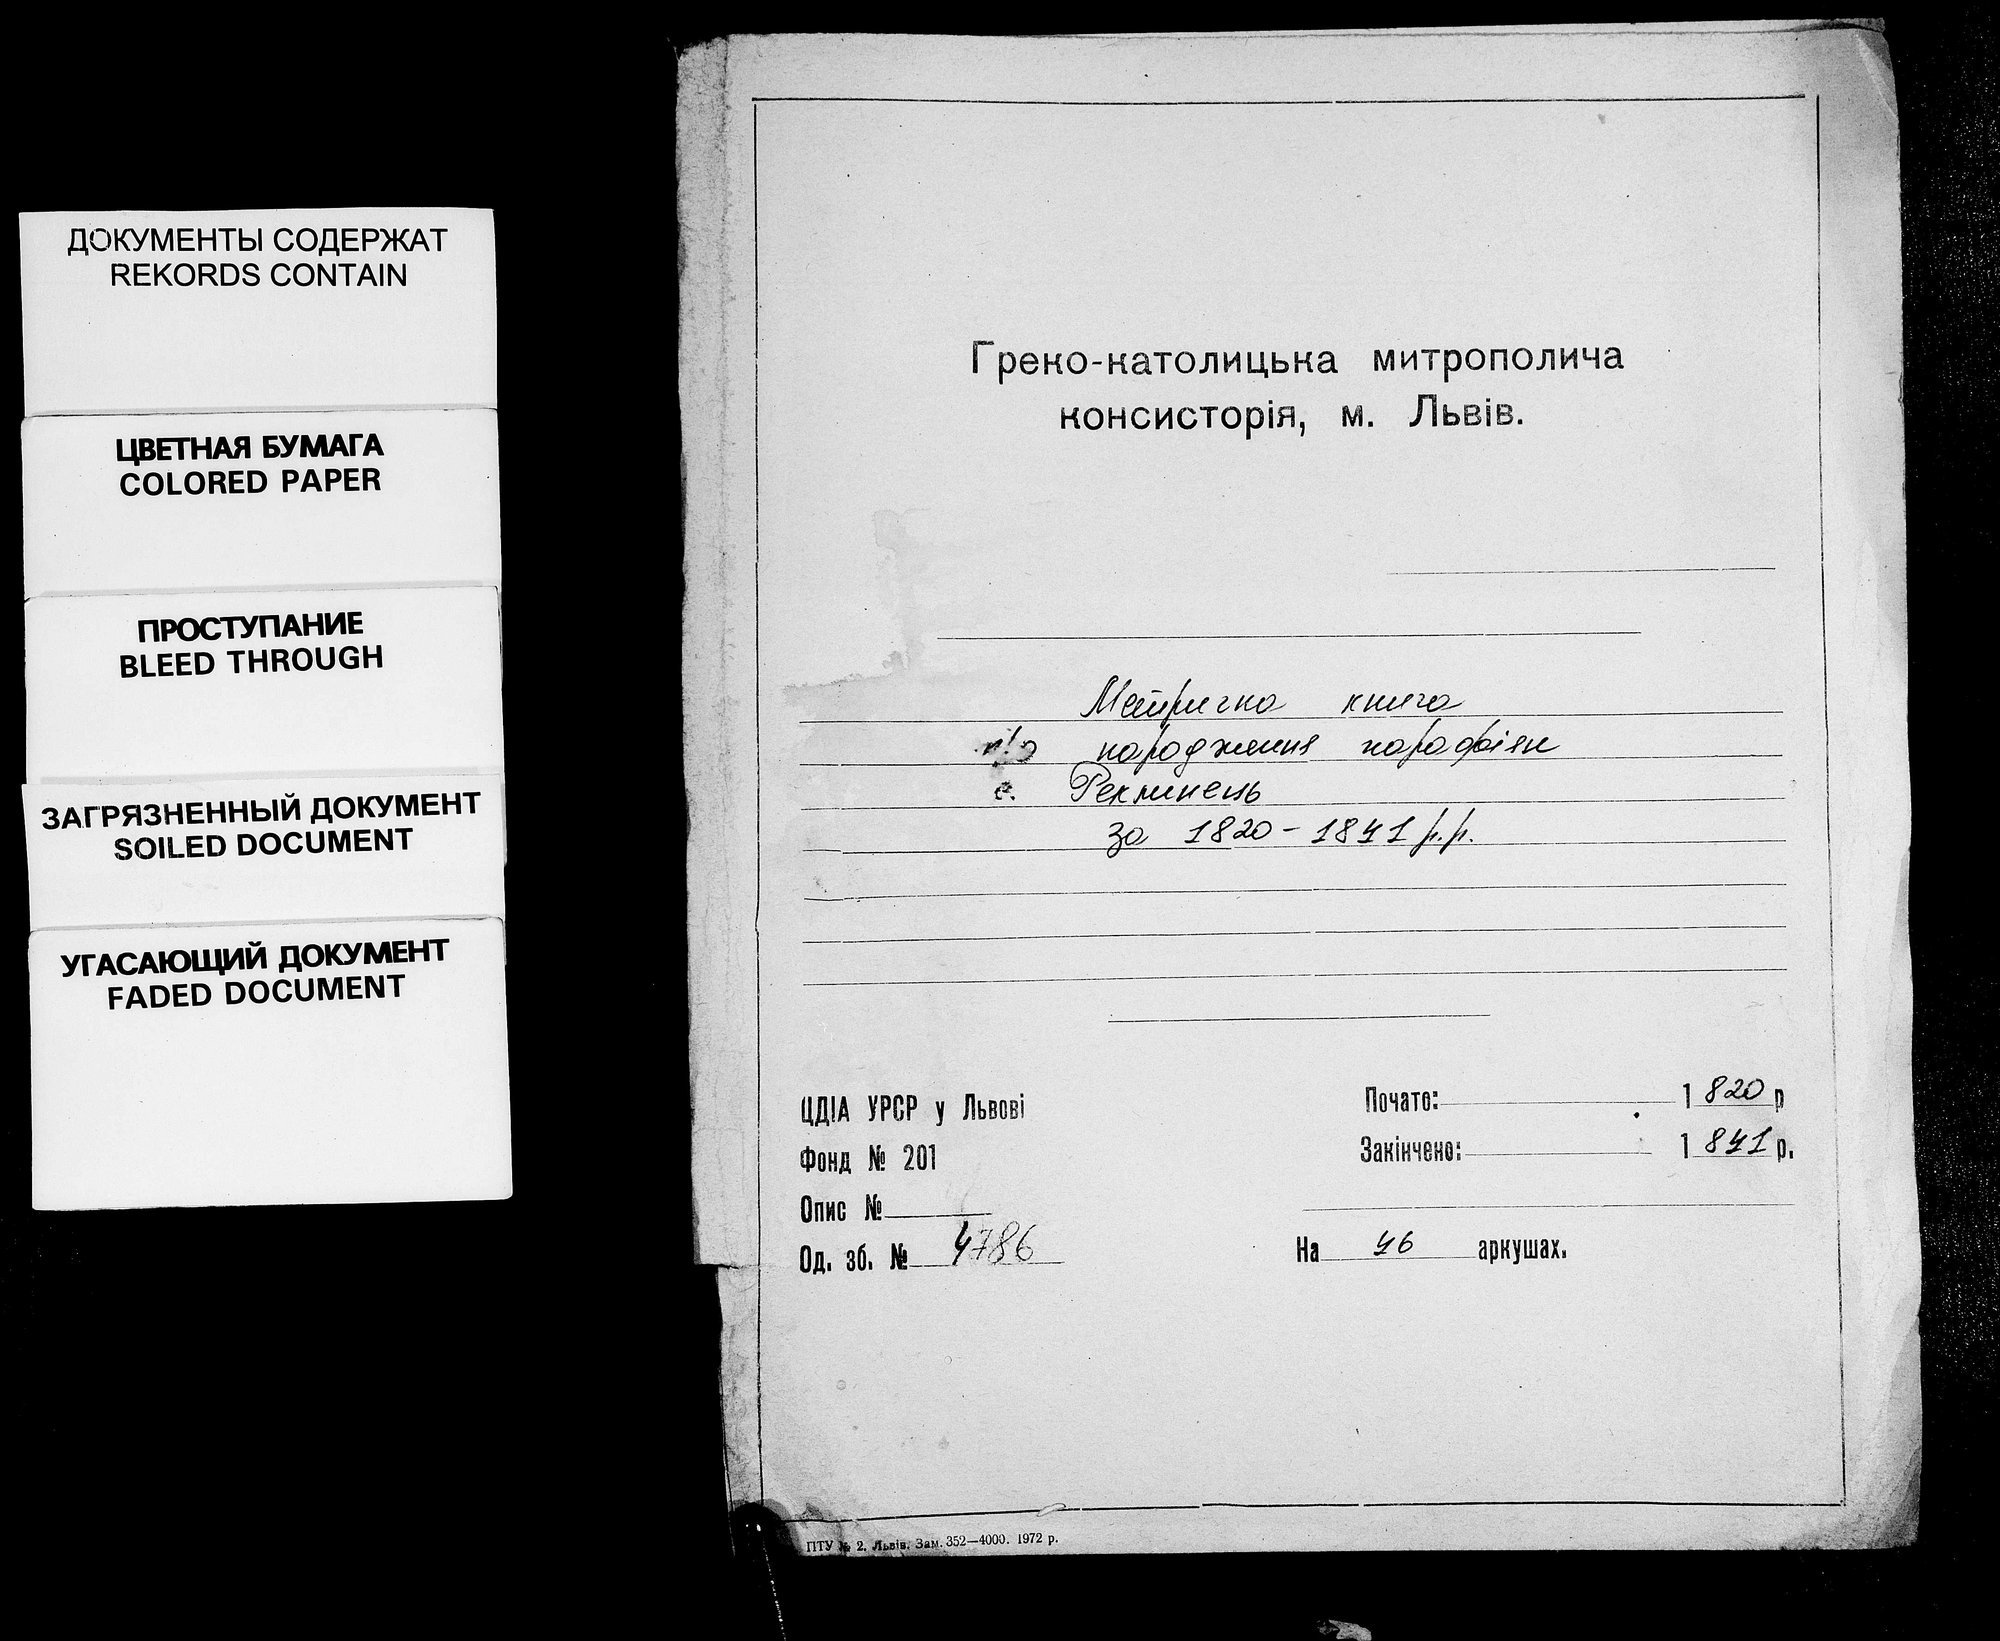 ДОКУМЕНТЫ СОДЕРЖАТ
REKORDS CONTAIN
ЦВЕТНАЯ БУМАГА
COLORED PAPER
ПРОСТУПАНИЕ
BLEED THROUGH
ЗАГРЯЗНЕННЫЙ ДОКУМЕНТ
SOILED DOCUMENT
УГАСАЮЩИЙ ДОКУМЕНТ
FADED DOCUMENT
Греко-католицька митрополича
консисторія, м. Львів.
Метрична книга
про народження парафіян
с. Реклинець
за 1820-1841 р.р.
ЦДІА УРСР у Львові
Фонд № 201
Опис №
Од. зб. № 4786
Почато: 1820 р
Закінчено: 1841 р.
На 46 аркушах.
ПТУ № 2. Львів. Зам. 352—4000. 1972 р.